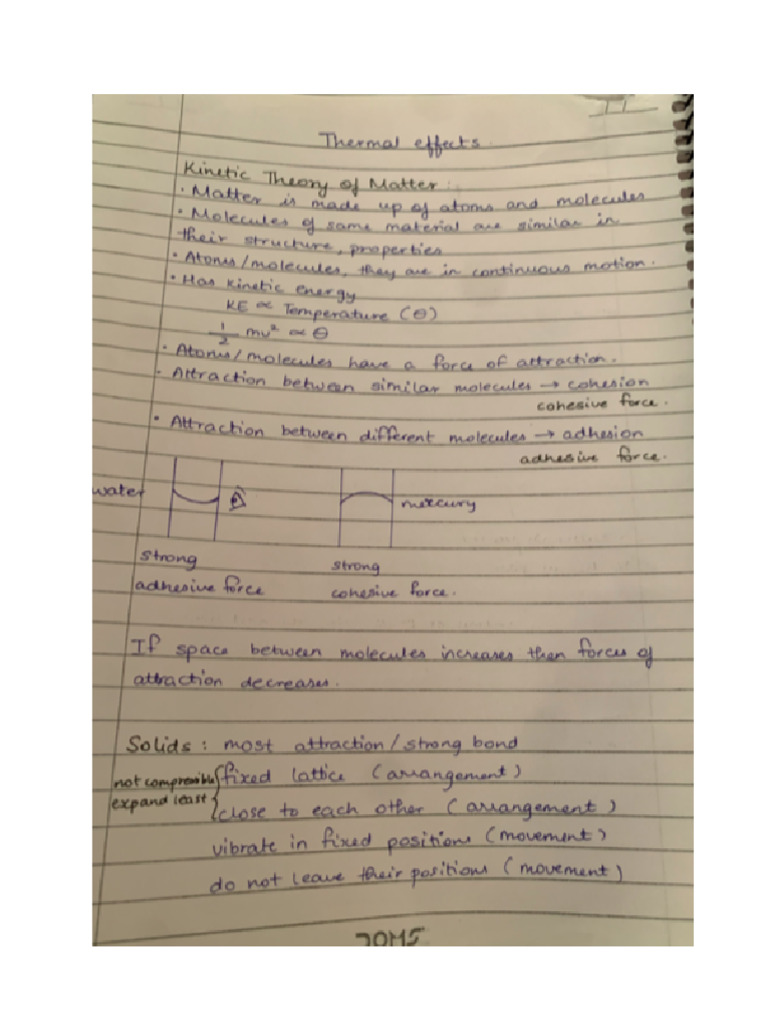 Thermal effects.
Kinetic Theory of Matter:
· Matter is made up of atoms and molecules
· Molecules of same material are similar in
their structure, properties
· Atoms/molecules, they are in continuous motion.
· Has kinetic energy
KE ∝ Temperature (θ)
1/2 mv² ∝ θ
· Atoms/molecules have a force of attraction.
· Attraction between similar molecules → cohesion
cohesive force.
· Attraction between different molecules → adhesion
adhesive force.
water mercury
strong strong
adhesive force cohesive force.
If space between molecules increases then forces of
attraction decreases.
Solids: most attraction/strong bond
not compressible { fixed lattice (arrangement)
expand least { close to each other (arrangement)
vibrate in fixed positions (movement)
do not leave their positions (movement)